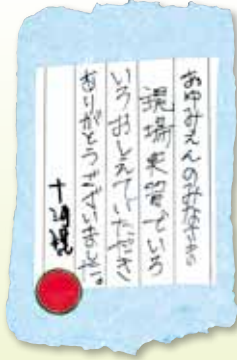 あゆみえんのみなさま
現場実習でいろ
いろおしえていただき
ありがとうございました。